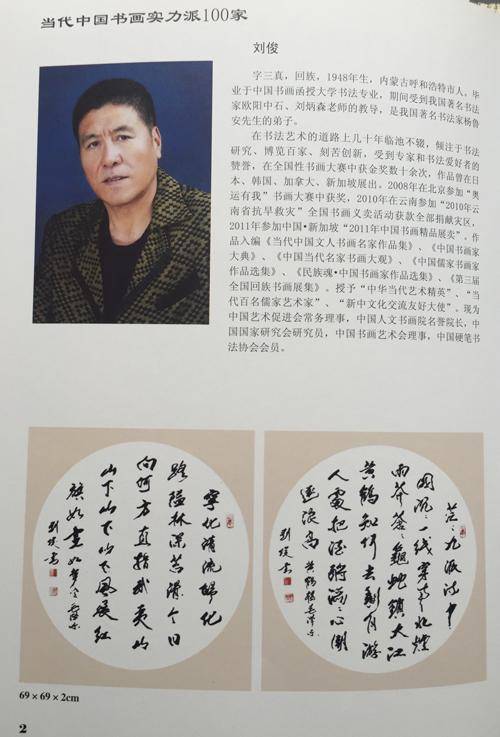 当代中国书画实力派100家
刘俊
字三真，回族，1948年生，内蒙古呼和浩特市人。毕
业于中国书画函授大学书法专业，期间受到我国著名书法
家欧阳中石、刘炳森老师的教导，是我国著名书法家杨鲁
安先生的弟子。
在书法艺术的道路上几十年临池不辍，倾注于书法
研究、博览百家、刻苦创新，受到专家和书法爱好者的
赞誉，在全国性书画大赛中获金奖数十余次，作品曾在日
本、韩国、加拿大、新加坡展出。2008年在北京参加“奥
运有我”书画大赛中获奖，2010年在云南参加“2010年云
南省抗旱救灾”全国书画义卖活动获款全部捐献灾区，
2011年参加中国·新加坡“2011年中国书画精品展卖”。作
品入编《当代中国文人书画名家作品集》、《中国书画家
大典》、《中国当代名家书画大观》、《中国儒家书画家
作品选集》、《民族魂·中国书画家作品选集》、《第三届
全国回族书画展集》。授予“中华当代艺术精英”、“当
代百名儒家艺术家”、“新中文化交流友好大使”。现为
中国艺术促进会常务理事，中国人文书画院名誉院长，中
国国家研究会研究员，中国书画艺术会理事，中国硬笔书
法协会会员。
宁化清流归化
路隘林深苔滑今日
向何方直指武夷山
山下山下山下风展红
旗如画
刘俊书
茫茫九派流中
国沉沉一线穿南北烟
雨莽苍苍龟蛇锁大江
黄鹤知何去剩有游
人处把酒酹滔滔心潮
逐浪高
刘俊书
69×69×2cm
2